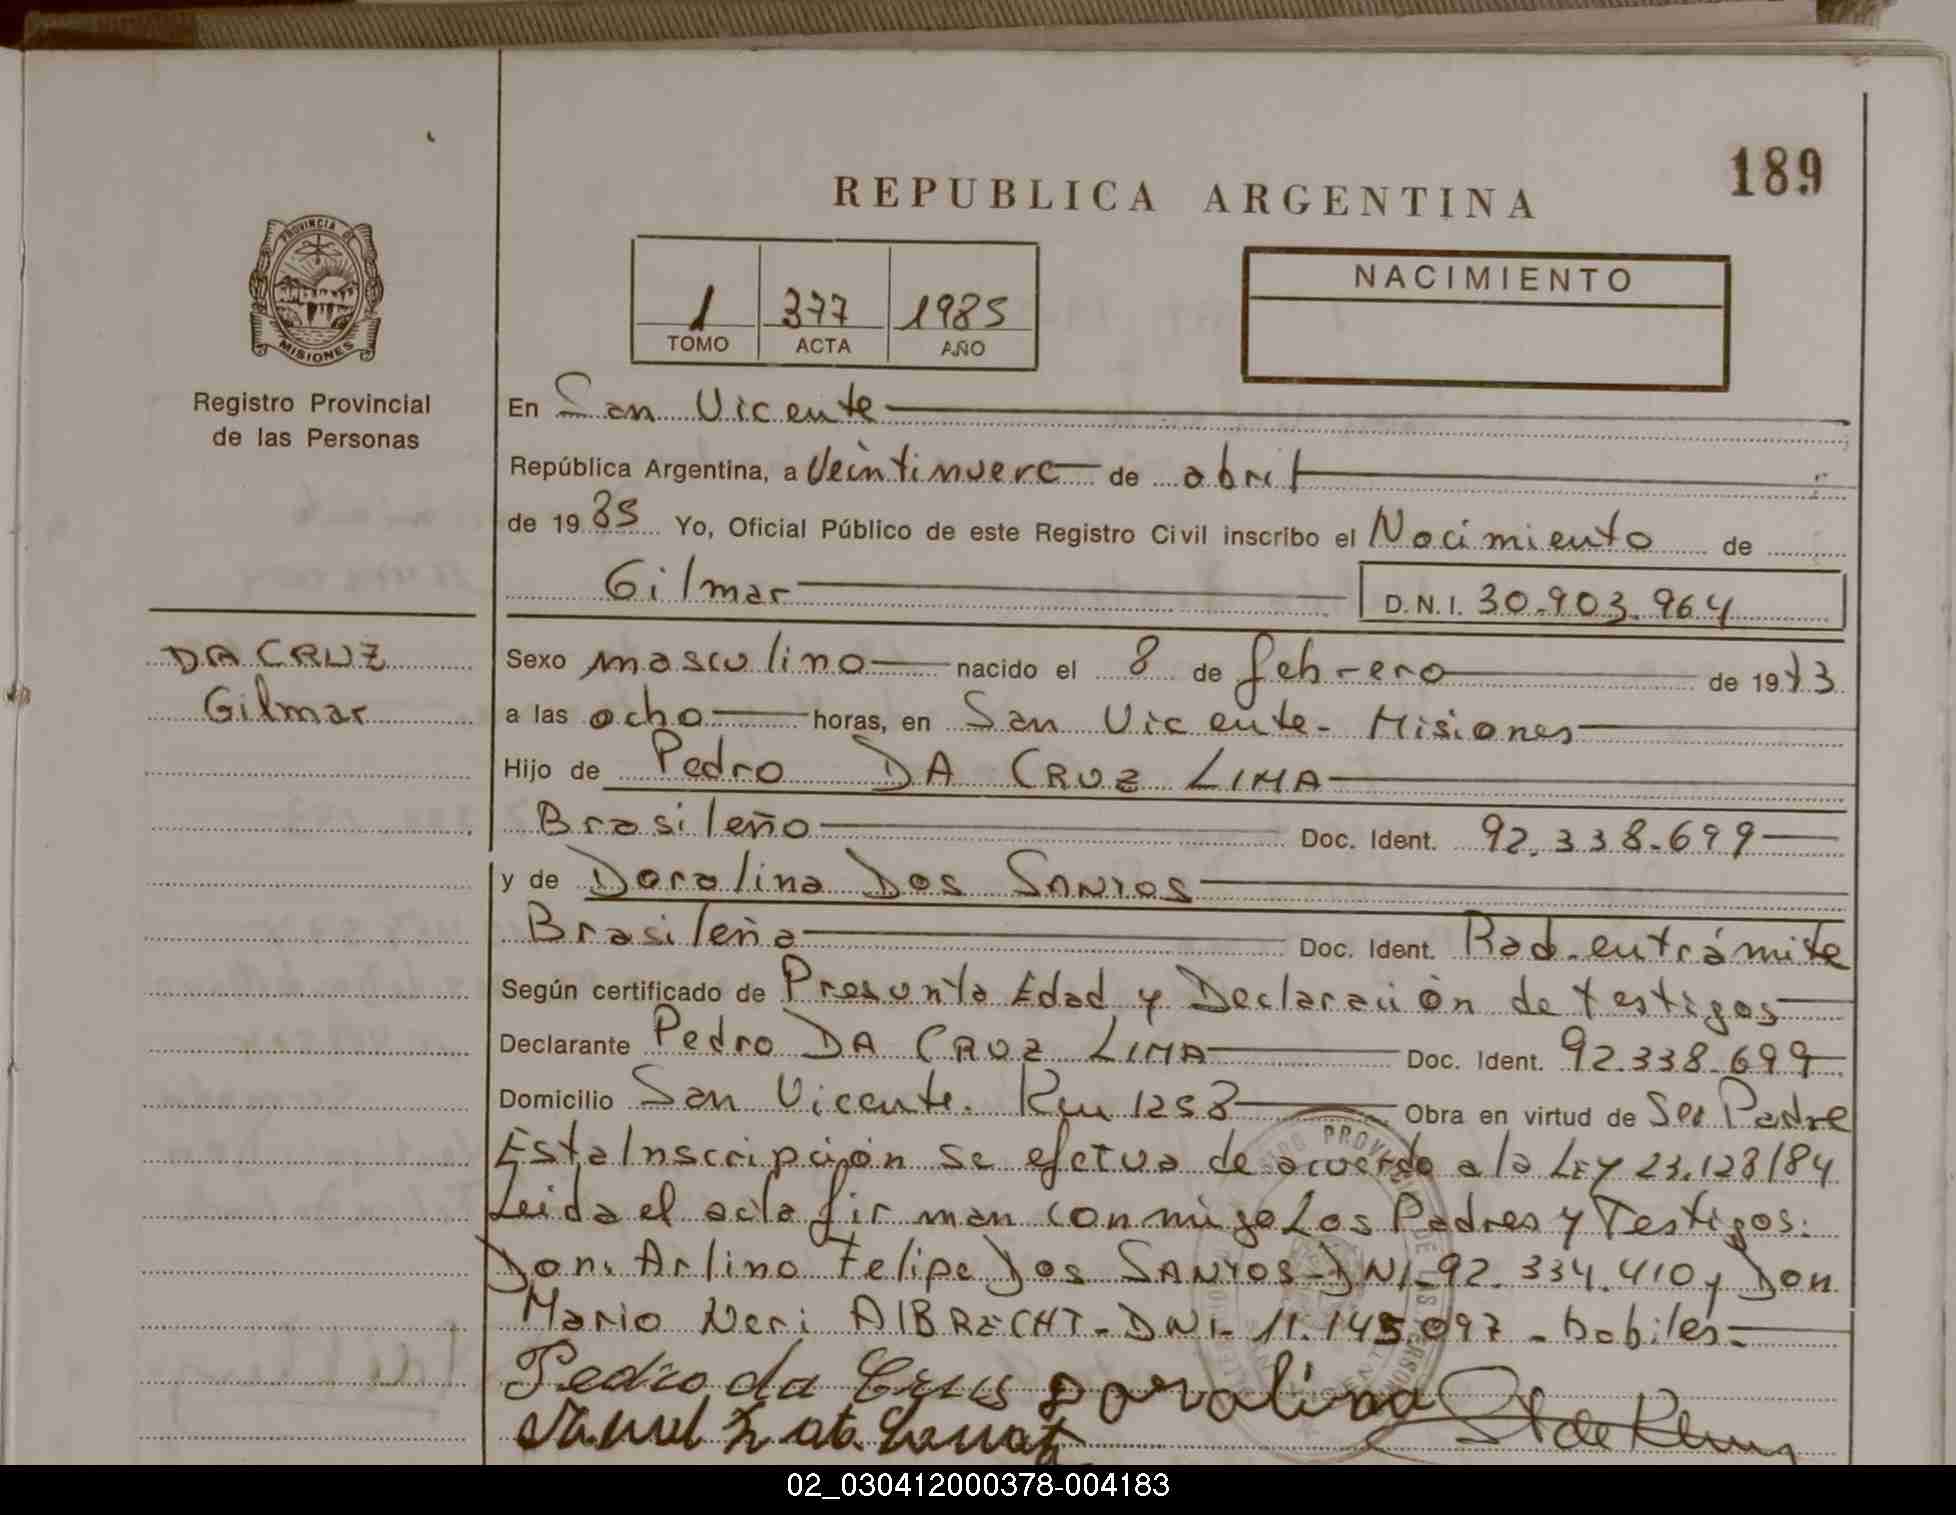 189
REPUBLICA ARGENTINA
PROVINCIA DE
MISIONES
Registro Provincial
de las Personas
1 377 1985
TOMO ACTA AÑO
NACIMIENTO
En San Vicente
República Argentina, a Veintinueve de abril
de 1985 Yo, Oficial Público de este Registro Civil inscribo el Nacimiento de
Gilmar D.N.I. 30.903.964
DA CRUZ
Gilmar
Sexo masculino nacido el 8 de febrero de 1973
a las ocho horas, en San Vicente - Misiones
Hijo de Pedro DA CRUZ LIMA
Brasileño Doc. Ident. 92.338.699
y de Doralina Dos SANTOS
Brasileña Doc. Ident. Rad. entrámite
Según certificado de Presunta Edad y Declaración de testigos
Declarante Pedro DA CRUZ LIMA Doc. Ident. 92.338.699
Domicilio San Vicente. Km 1258 Obra en virtud de Ser Padre
Esta Inscripción se efctua de acuerdo a la LEY 23.128/84
Leida el acta firman conmigo Los Padres y Testigos:
Don. Arlino Felipe Dos SANTOS - DNI - 92.334.410 y Don
Mario Neri AlBRECHT - DNI - 11.145.097 - habiles -
Pedro da Crus Doralina
02_030412000378-004183